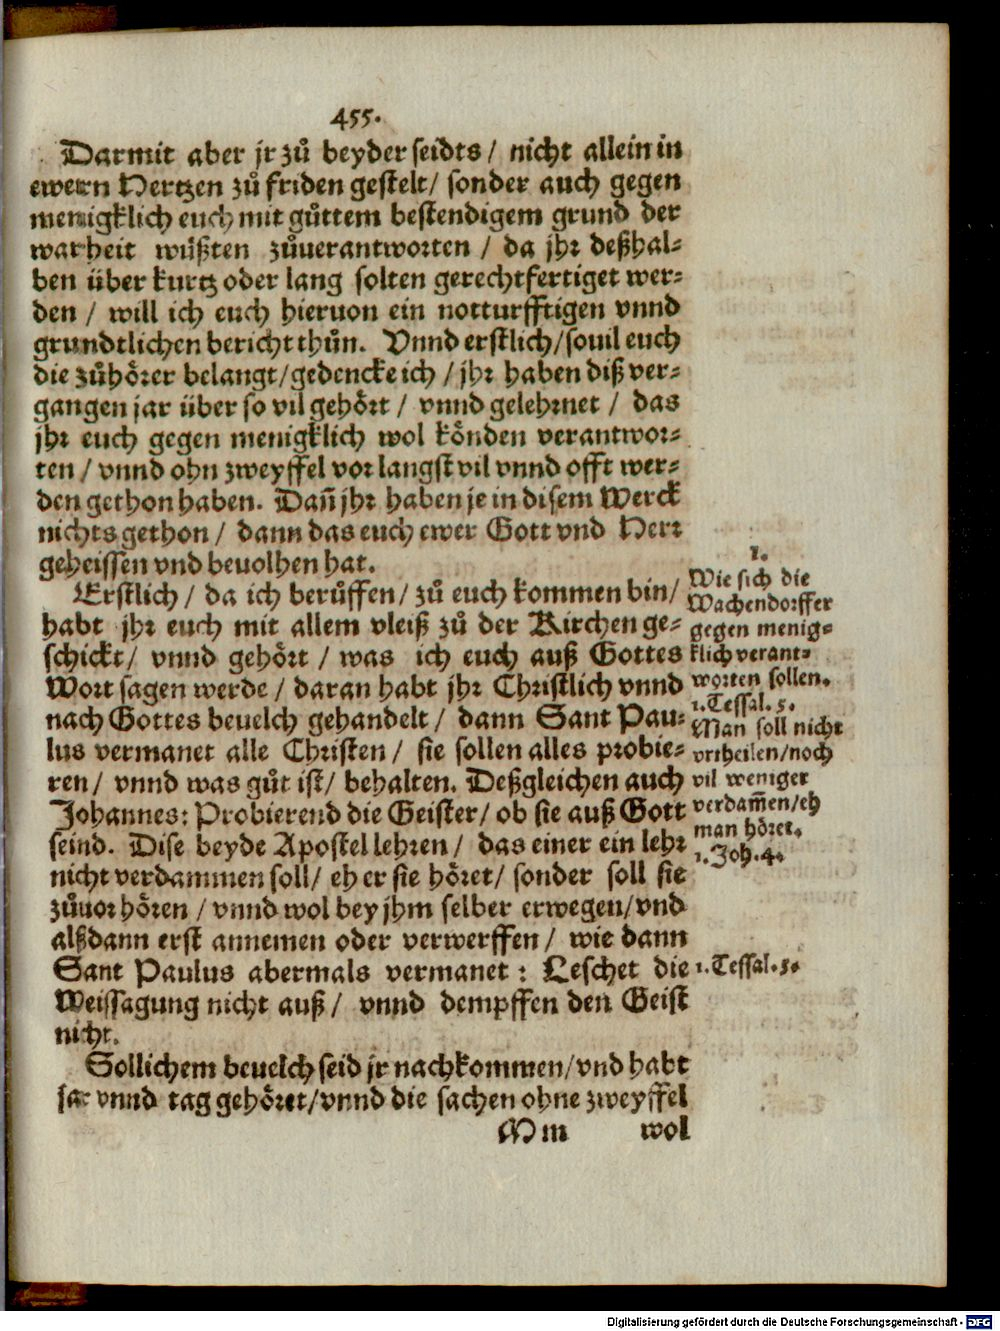 455.
Darmit aber jr zuͦ beyder seidts / nicht allein in
ewern Hertzen zuͦ friden gestelt / sonder auch gegen
menigklich euch mit guͦttem bestendigem grund der
warheit wüßten zuͦuerantworten / da jhr deßhal⸗
ben über kurtz oder lang solten gerechtfertiget wer⸗
den / will ich euch hieruon ein notturfftigen vnnd
grundtlichen bericht thuͦn. Vnnd erstlich / souil euch
die zuͦhörer belangt / gedencke ich / jhr haben diß ver⸗
gangen jar über so vil gehört / vnnd gelehrnet / das
jhr euch gegen menigklich wol könden verantwor⸗
ten / vnnd ohn zweyffel vor langst vil vnnd offt wer⸗
den gethon haben. Dañ jhr haben je in disem Werck
nichts gethon / dann das euch ewer Gott vnd Herr
geheissen vnd beuolhen hat.
Erstlich / da ich beruͦffen / zuͦ euch kommen bin /
habt jhr euch mit allem vleiß zuͦ der Kirchen ge⸗
schickt / vnnd gehört / was ich euch auß Gottes
Wort sagen werde / daran habt jhr Christlich vnnd
nach Gottes beuelch gehandelt / dann Sant Pau⸗
lus vermanet alle Christen / sie sollen alles probie⸗
ren / vnnd was guͦt ist / behalten. Deßgleichen auch
Johannes: Probierend die Geister / ob sie auß Gott
seind. Dise beyde Apostel lehren / das einer ein lehr
nicht verdammen soll / eh er sie höret / sonder soll sie
zuͦuor hören / vnnd wol bey jhm selber erwegen / vnd
alßdann erst annemen oder verwerffen / wie dann
Sant Paulus abermals vermanet : Leschet die
Weissagung nicht auß / vnnd dempffen den Geist
nicht.
Sollichem beuelch seid jr nachkommen / vnd habt
jar vnnd tag gehöret / vnnd die sachen ohne zweyffel
Mm wol
1.
Wie sich die
Wachendorffer
gegen menig⸗
klich verant⸗
worten sollen.
1. Tessal. 5.
Man soll nicht
vrtheilen / noch
vil weniger
verdam̃en / eh
man höret.
1. Joh. 4.
1. Tessal. 5.
Digitalisierung gefördert durch die Deutsche Forschungsgemeinschaft - DFG